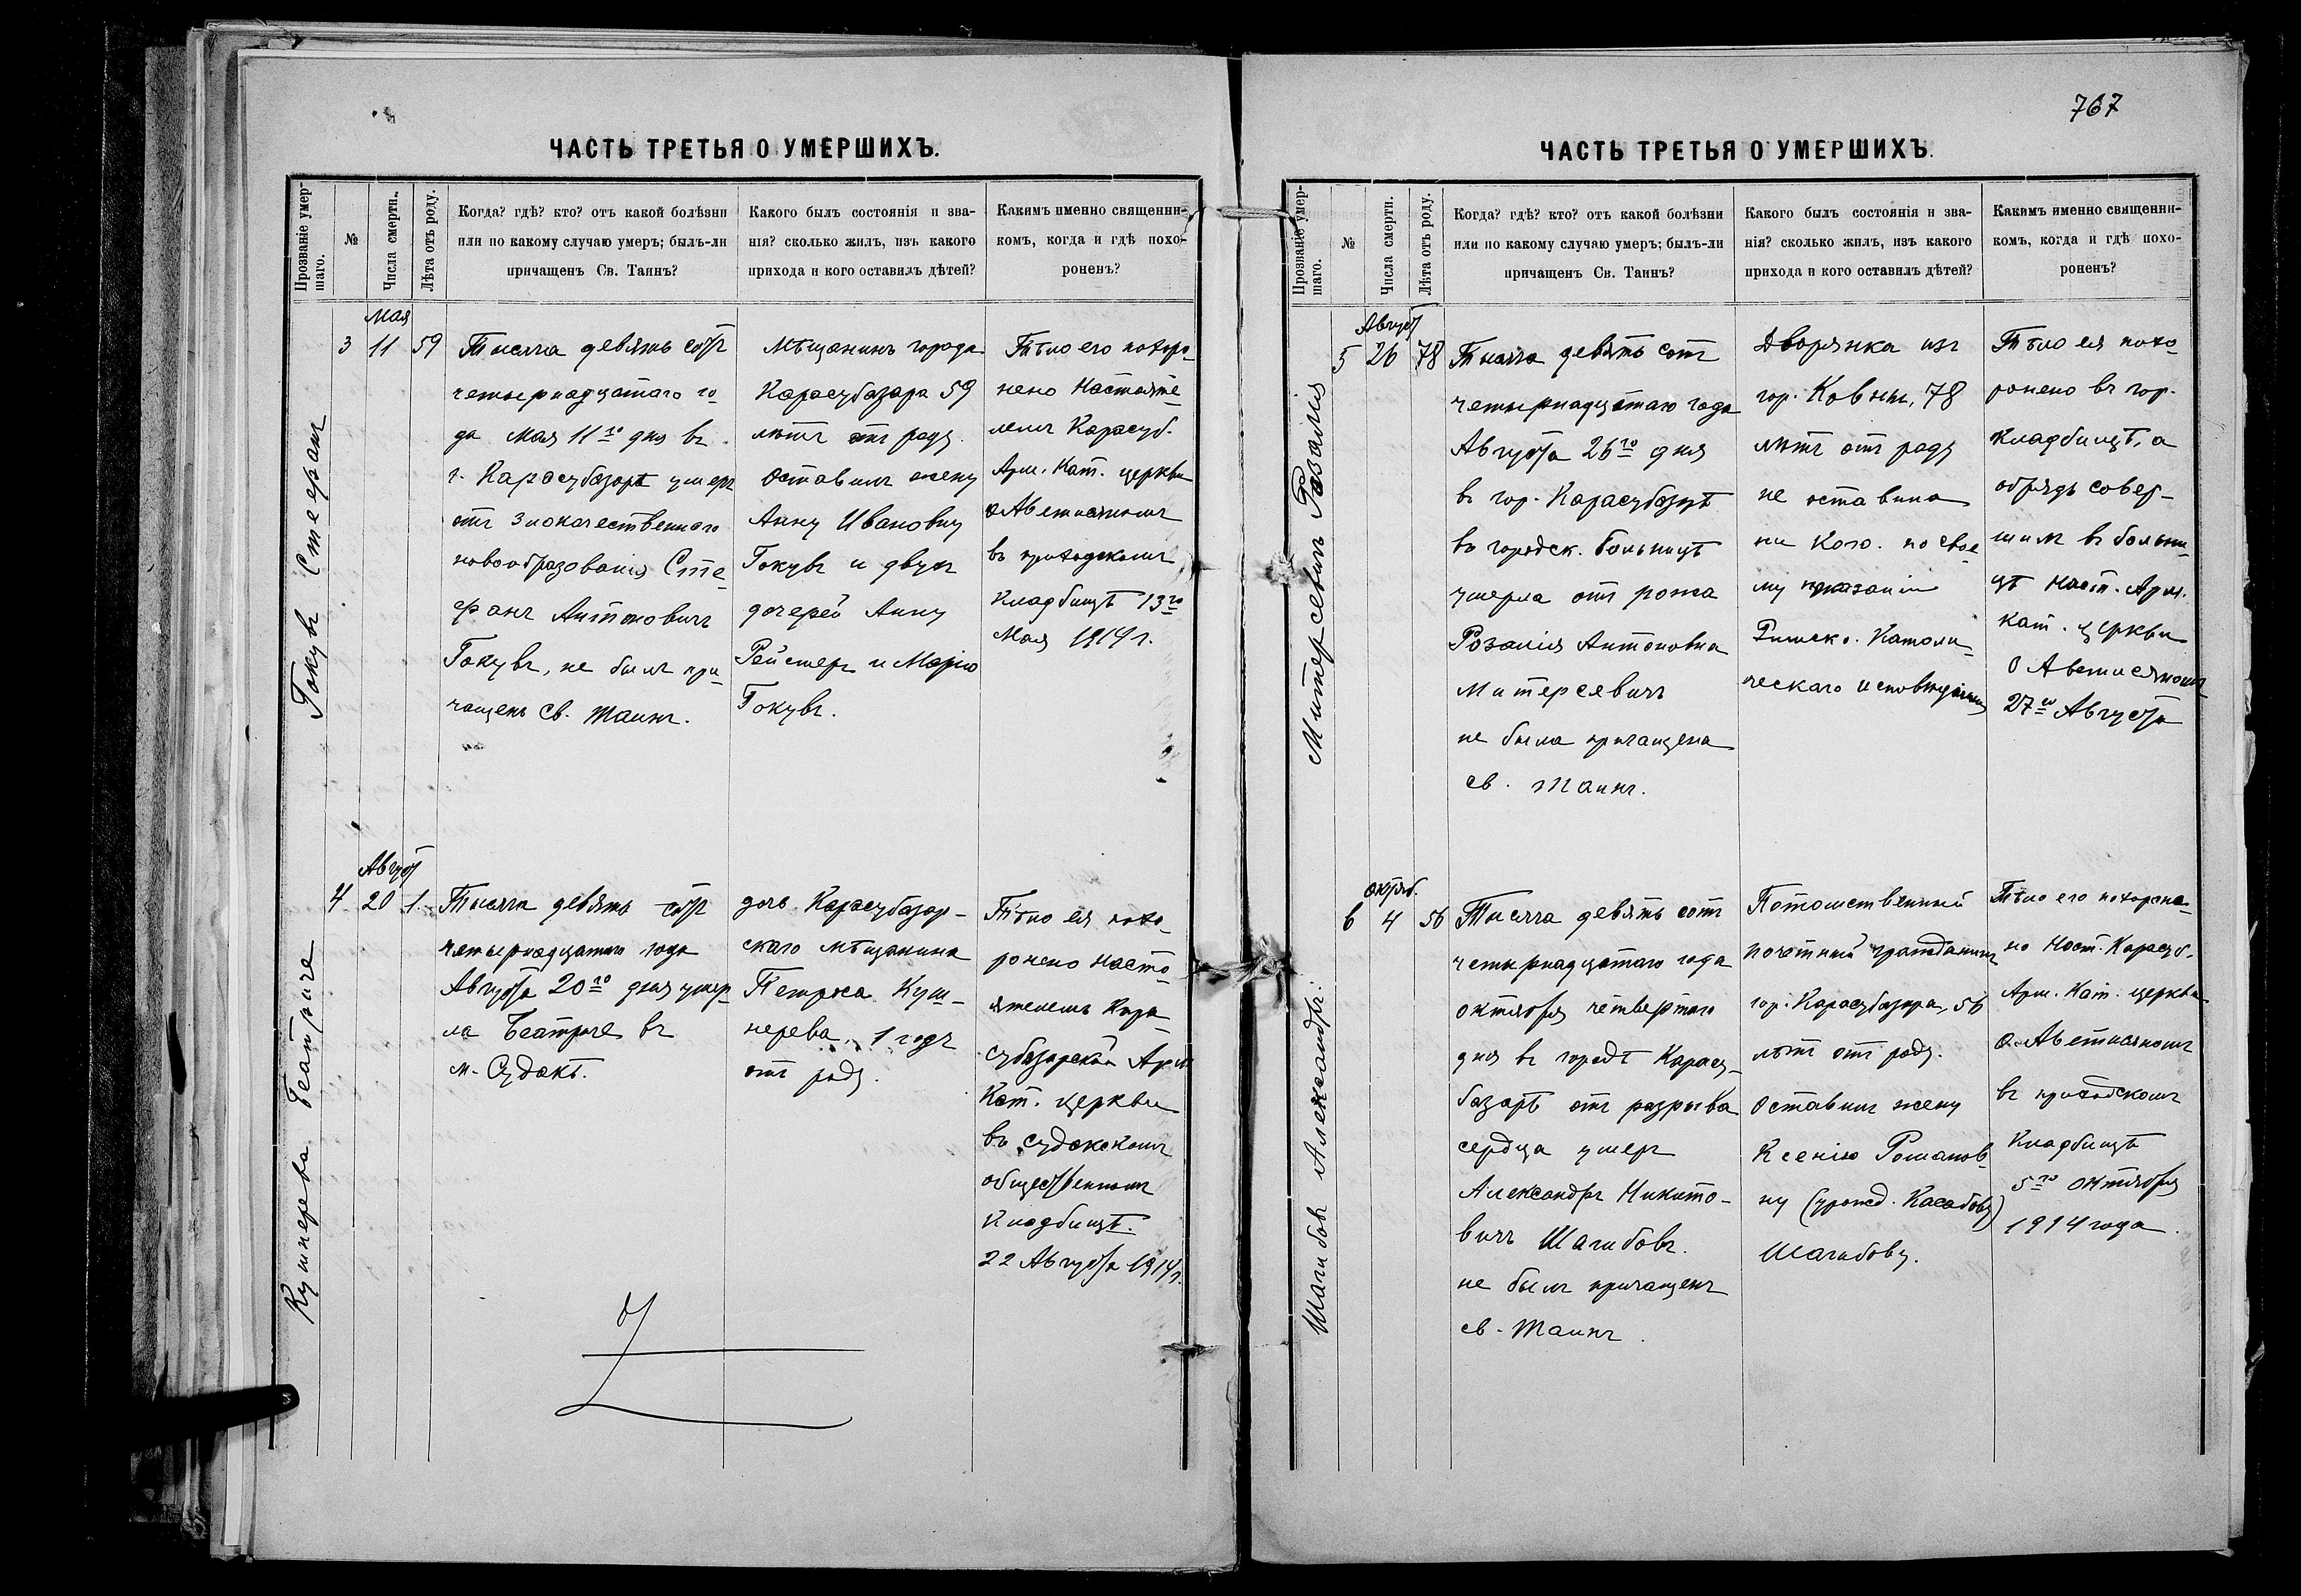 767
ЧАСТЬ ТРЕТЬЯ О УМЕРШИХЪ.
Прозваніе умер-
шаго.
№
Числа смерти.
Лѣта отъ роду.
Когда? гдѣ? кто? отъ какой болѣзни
или по какому случаю умеръ; былъ-ли
причащенъ Св. Таинъ?
Какого былъ состоянія и зва-
нія? сколько жилъ, изъ какого
прихода и кого оставилъ дѣтей?
Какимъ именно священни-
комъ, когда и гдѣ похо-
роненъ?
Гокувъ Стефанъ
3
Мая
11
59
Тысяча девять сотъ
четырнадцатаго го-
да Мая 11го дня въ
г. Карасубазарѣ умеръ
отъ злокачественнаго
новообразованія Сте-
фанъ Антоновичъ
Гокувъ, не былъ при-
чащенъ св. Таинъ.
Мѣщанинъ города
Карасубазара 59
лѣтъ отъ роду.
оставилъ жену
Анну Ивановну
Гокувъ и двухъ
дочерей Анну
Рейстеръ и Марію
Гокувъ.
Тѣло его похоро-
нено Настояте-
лемъ Карасуб.
Арм. Кат. церкви
о Аветисяномъ
въ приходскомъ
кладбищѣ 13го
Мая 1914 г.
Кушнерева Беатриче
4
Август
20
1
Тысяча девять сотъ
четырнадцатаго года
Августа 20го дня умер-
ла Беатриче въ
м. Судакѣ.
дочь Карасубазар-
скаго мѣщанина
Петроса Куш-
нерева, 1 годъ
отъ роду.
Тѣло ея похо-
ронено Насто-
ятелемъ Кара-
субазарской Арм
Кат. церкви
въ судакскомъ
общественномъ
кладбищѣ.
22 Августа 1914 г.
ЧАСТЬ ТРЕТЬЯ О УМЕРШИХЪ.
Прозваніе умер-
шаго.
№
Числа смерти.
Лѣта отъ роду.
Когда? гдѣ? кто? отъ какой болѣзни
или по какому случаю умеръ; былъ-ли
причащенъ Св. Таинъ?
Какого былъ состоянія и зва-
нія? сколько жилъ, изъ какого
прихода и кого оставилъ дѣтей?
Какимъ именно священни-
комъ, когда и гдѣ похо-
роненъ?
Митерсевичъ Розалія
5
Август
26
78
Тысяча девять сотъ
четырнадцатаго года
Августа 26го дня
въ гор. Карасубазарѣ
въ городск. больницѣ
умерла отъ рожа
Розалія Антоновна
Митерсевичъ
не была причащена
св. Таинъ.
Дворянка изъ
гор. Ковны, 78
лѣтъ отъ роду
не оставила
ни кого. по свое-
му показанію
Римско. Католи-
ческаго исповѣданія
Тѣло ея похо-
ронено въ гор.
кладбищѣ, а
обрядъ совер-
шилъ въ больни-
цѣ Наст. Арм.
кат. церкви
о Аветисяномъ
27го Августа
Шагибовъ Александръ.
6
октяб.
4
56
Тысяча девять сотъ
четырнадцатаго года
октября четвертаго
дня въ городѣ Карасу-
базарѣ отъ разрыва
сердца умеръ
Александръ Никито-
вичъ Шагибовъ.
не былъ причащенъ
св. Таинъ.
Потомственный
почетный гражданинъ
гор. Карасубазара, 56
лѣтъ отъ роду.
оставилъ жену
Ксенію Романов-
ну (урожд. Касабову)
Шагибову.
Тѣло его похороне-
но Наст. Карасуб.
Арм. Кат. церкви
о. Аветисяномъ
въ приходскомъ
кладбищѣ
5го октября
1914 года.